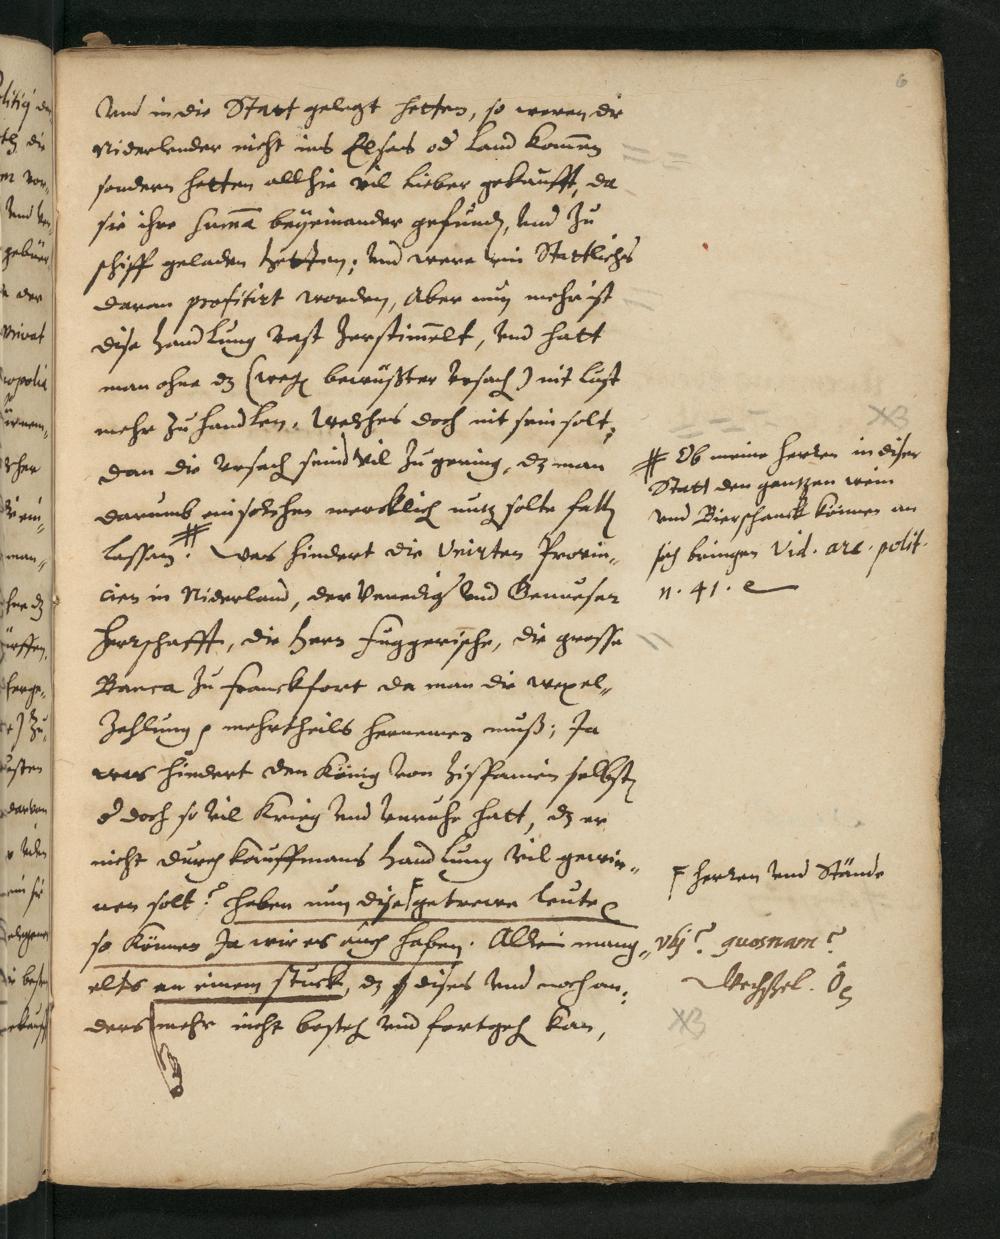 6
Vnd in die Statt gelegt hetten, so weren die
Niderlender nicht ins Elsas od Land kommen
sondern hetten allhie vil lieber gekaufft, da
sie ihre summa beyeinander gefunden, vnd zu
schiff geladen hetten; vnd were ein Stattliches
daran profitirt worden, Aber nun mehr ist
dise handlung vast zerstimmelt, vnd hatt
man ohne dz (wegen bewüster vrsach) nit lust
mehr zu handlen. Welches doch nit sein solt,
dan die vrsach seind vil zu gering, dz man
darumb ein solchen mercklich nutz solte fallen
lassen. # Was hindert die Vnirten Provin„
cien in Niderland, der Venedig vnd Genueser
Herrschafft, die Herrn Fuggerische, die grosse
Banca zu Franckfort da man die wexel„
Zahlung mehrtheils hernemen muß; Ja
was hindert den König von Hispanien selbst,
d doch so vil Krieg vnd vnruhe hatt, dz er
nicht durch kauffmans handlung vil gewin„
nen solt? haben nun dise F getrewe leute
so können Ja wir es auch haben. Allein mang„
elts an einem stuck, dz dises vnd noch an„
ders mehr nicht besteh vnd fortgeh kan,
# Ob meine herren in diser
Statt den gantzen wein
vnd Bierschanck können an
sich bringen Vid. arc. polit.
n. 41. e
F herren vnd Stände
vbj? quosnam?
Wechßel.